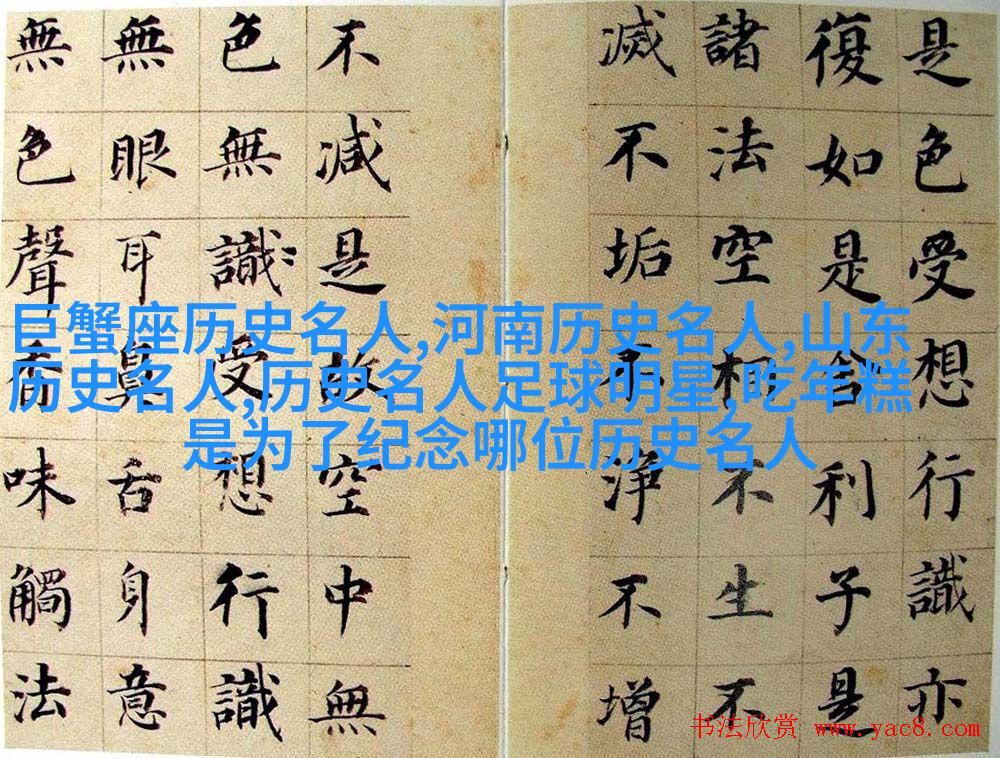 是色受想行識亦
復如是舍利子是
諸法空相不生不
滅不垢不淨不增
不減是故空中無
色無識受想行識
無眼耳鼻舌身意
無色聲香味觸法
巨蟹座历史名人,河南历史名人,山东
历史名人,历史名人足球明星,吃年糕
是为了纪念哪位历史名人
书法欣赏 www.yac8.com